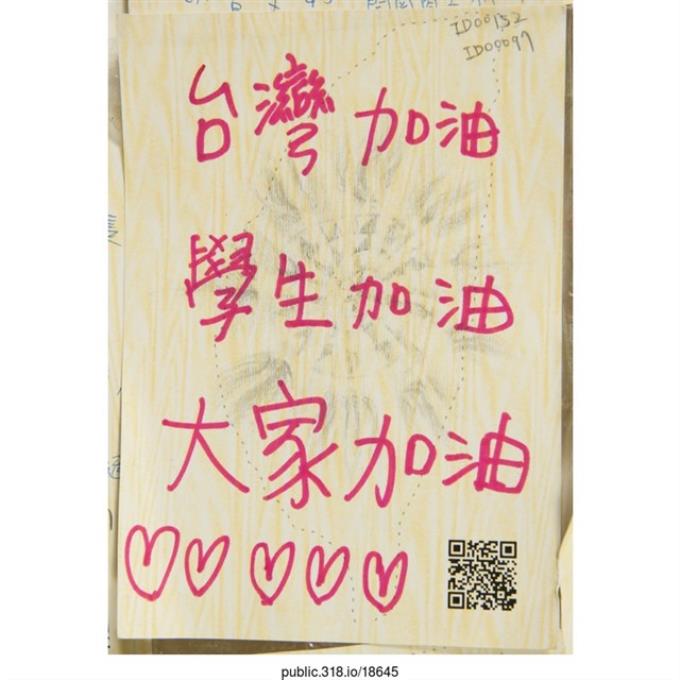 ID00152
ID00097
台灣加油
學生加油
大家加油
public.318.io/18645